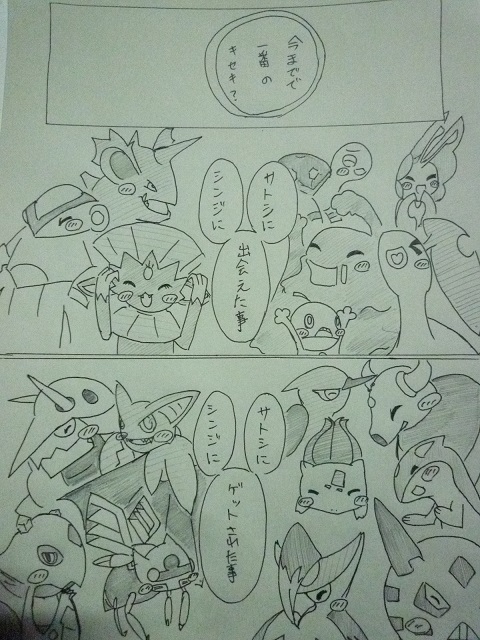 今までで
一番の
キセキ？
サトシに
シンジに
出会えた事
サトシに
シンジに
ゲットされた事